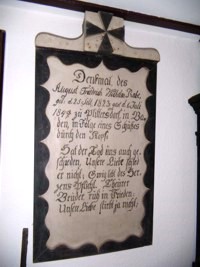 Denkmal des
August Friedrich Wilhelm
geb. d. 21 Juli 1823 gest. d. 6 Juli
1849 zu Philippsburg in Ba-
den, in Folge eines Schußes
durch den Kopf.
Hat der Tod uns auch ge-
schieden, Unsre Liebe schied
er nicht; Ewig ists des Her-
zens Pflicht. Theurer
Bruder ruh in Frieden.
Unsre Liebe stirbt ja nicht.